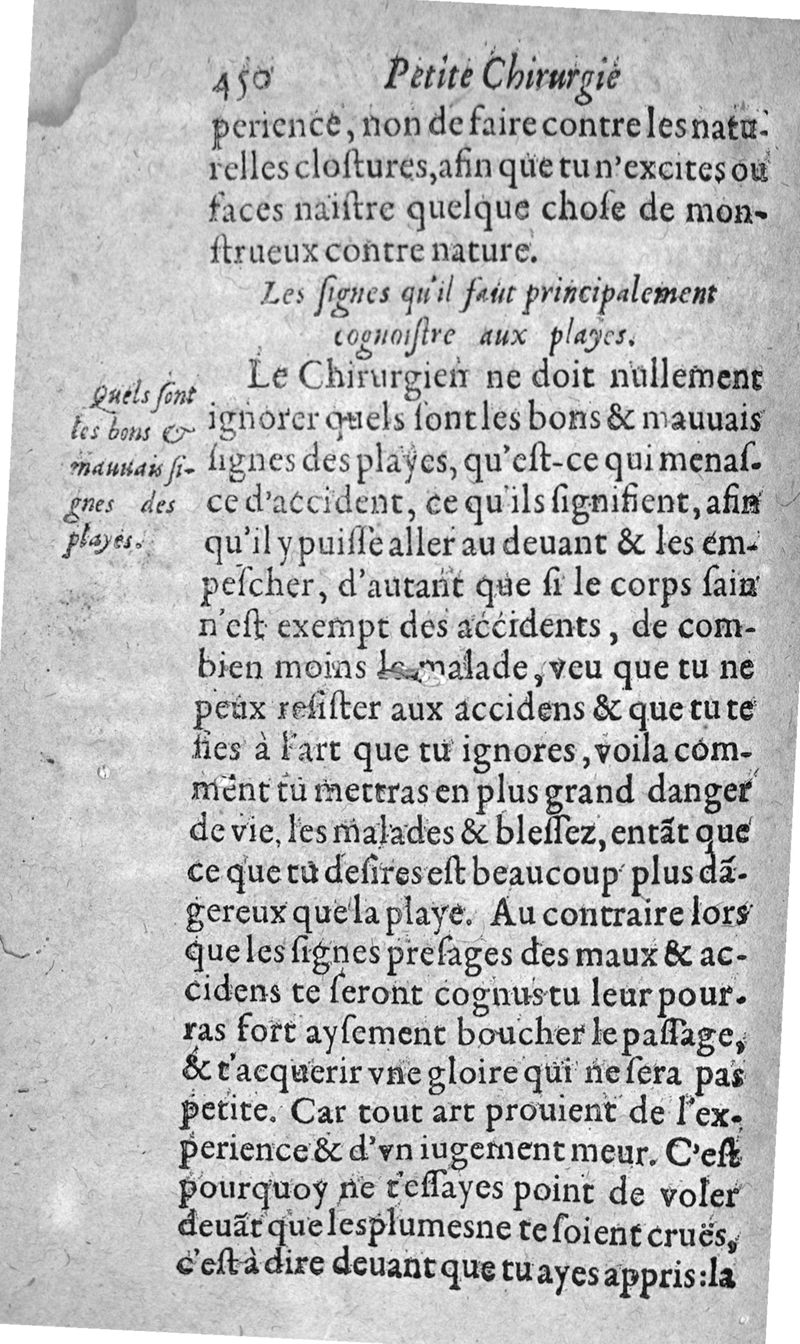 450 Petite Chirurgie
perience, non de faire contre les natu-
relles clostures, afin que tu n'excites ou
faces naistre quelque chose de mon-
strueux contre nature.
Les signes qu'il faut principalement
cognoistre aux playes.
Quels sont
les bons &
mauuais si-
gnes des
playes.
Le Chirurgien ne doit nullement
ignorer quels sont les bons & mauuais
signes des playes, qu'est-ce qui menas-
ce d'accident, ce qu'ils signifient, afin
qu'il y puisse aller au deuant & les em-
pescher, d'autant que si le corps sain
n'est exempt des accidents, de com-
bien moins le malade, veu que tu ne
peux resister aux accidens & que tu te
fies à l'art que tu ignores, voila com-
ment tu mettras en plus grand danger
de vie, les malades & blessez, entãt que
ce que tu desires est beaucoup plus dã-
gereux que la playe. Au contraire lors
que les signes presages des maux & ac-
cidens te seront cognus tu leur pour-
ras fort aysement boucher le passage,
& t'acquerir vne gloire qui ne sera pas
petite. Car tout art prouient de l'ex-
perience & d'vn iugement meur. C'est
pourquoy ne t'essayes point de voler
deuãt que les plumes ne te soient cruës,
c'est à dire deuant que tu ayes appris: la